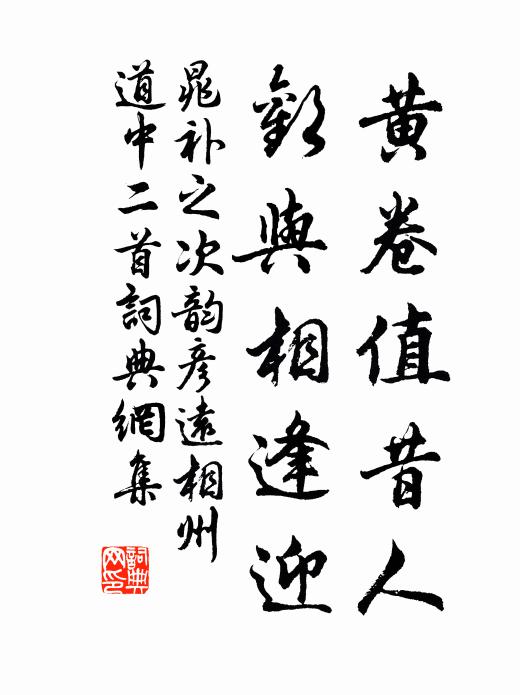 黄卷值昔人
歡與相逢迎
晁补之次韵彦遠相州
道中二首詞典網集
詞典网印